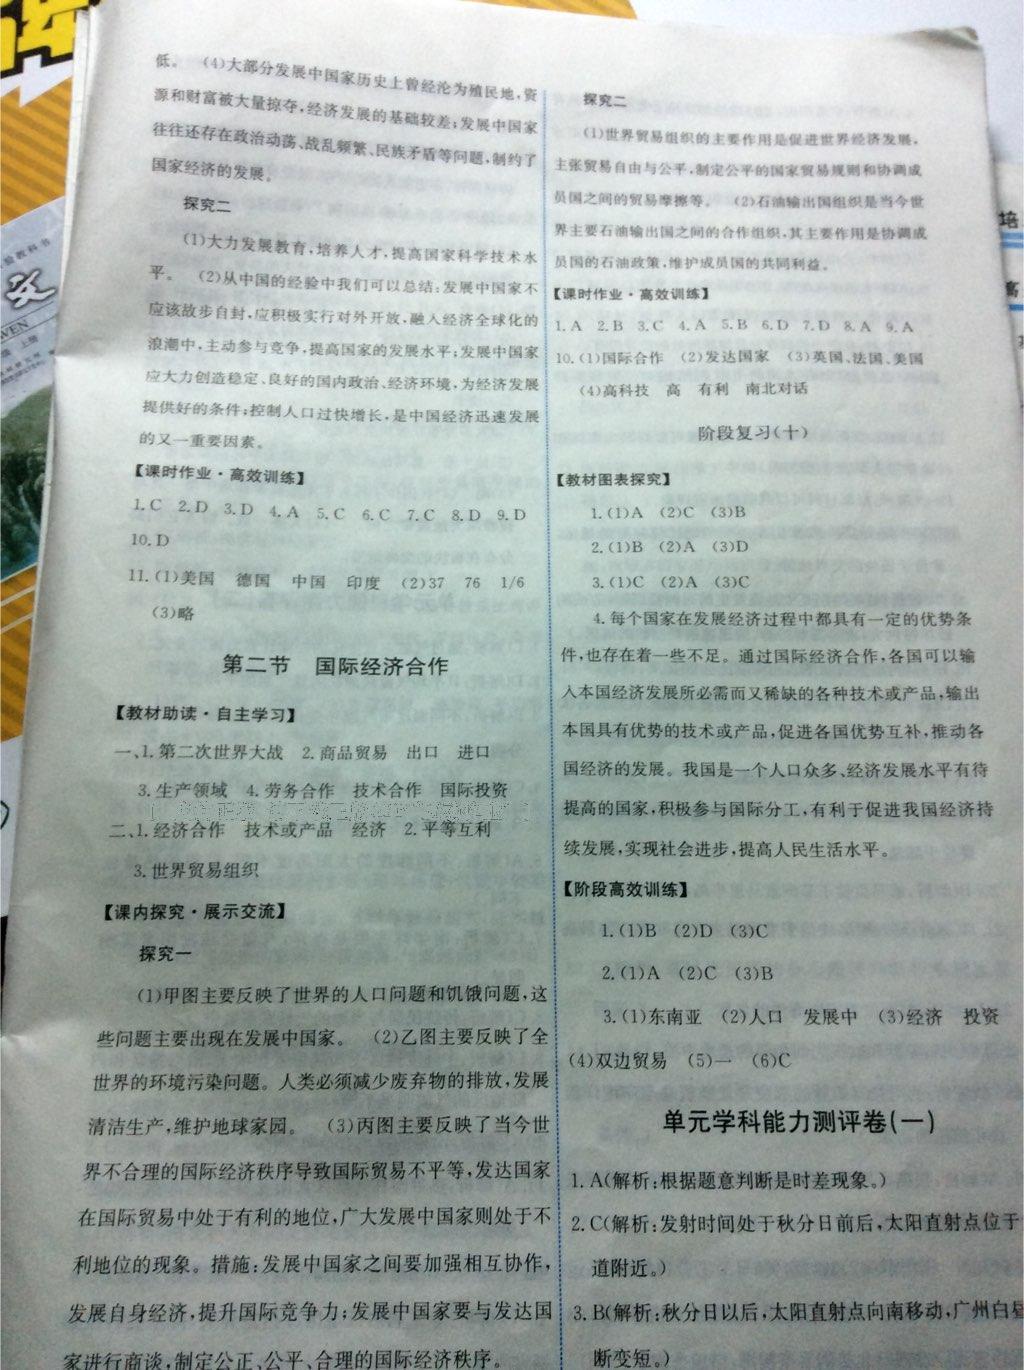 低。 (4)大部分发展中国家历史上曾经沦为殖民地,资
源和财富被大量掠夺,经济发展的基础较差;发展中国家
往往还存在政治动荡、战乱频繁、民族矛盾等问题,制约了
国家经济的发展。
探究二
(1)大力发展教育,培养人才,提高国家科学技术水
平。 (2)从中国的经验中我们可以总结:发展中国家不
应该故步自封,应积极实行对外开放,融入经济全球化的
浪潮中,主动参与竞争,提高国家的发展水平;发展中国家
应大力创造稳定、良好的国内政治、经济环境,为经济发展
提供好的条件;控制人口过快增长,是中国经济迅速发展
的又一重要因素。
【课时作业·高效训练】
1.C 2.D 3.D 4.A 5.C 6.C 7.C 8.D 9.D
10.D
11.(1)美国 德国 中国 印度 (2)37 76 1/6
(3)略
第二节 国际经济合作
【教材助读·自主学习】
一、1.第二次世界大战 2.商品贸易 出口 进口
3.生产领域 4.劳务合作 技术合作 国际投资
二、1.经济合作 技术或产品 经济 2.平等互利
3.世界贸易组织
【课内探究·展示交流】
探究一
(1)甲图主要反映了世界的人口问题和饥饿问题,这
些问题主要出现在发展中国家。 (2)乙图主要反映了全
世界的环境污染问题。人类必须减少废弃物的排放,发展
清洁生产,维护地球家园。 (3)丙图主要反映了当今世
界不合理的国际经济秩序导致国际贸易不平等,发达国家
在国际贸易中处于有利的地位,广大发展中国家则处于不
利地位的现象。措施:发展中国家之间要加强相互协作,
发展自身经济,提升国际竞争力;发展中国家要与发达国
家进行商谈,制定公正、公平、合理的国际经济秩序。
探究二
(1)世界贸易组织的主要作用是促进世界经济发展,
主张贸易自由与公平,制定公平的国家贸易规则和协调成
员国之间的贸易摩擦等。 (2)石油输出国组织是当今世
界主要石油输出国之间的合作组织,其主要作用是协调成
员国的石油政策,维护成员国的共同利益。
【课时作业·高效训练】
1.A 2.B 3.C 4.A 5.B 6.D 7.D 8.A 9.A
10.(1)国际合作 (2)发达国家 (3)英国、法国、美国
(4)高科技 高 有利 南北对话
阶段复习(十)
【教材图表探究】
1.(1)A (2)C (3)B
2.(1)B (2)A (3)D
3.(1)C (2)A (3)C
4.每个国家在发展经济过程中都具有一定的优势条
件,也存在着一些不足。通过国际经济合作,各国可以输
入本国经济发展所必需而又稀缺的各种技术或产品,输出
本国具有优势的技术或产品,促进各国优势互补,推动各
国经济的发展。我国是一个人口众多、经济发展水平有待
提高的国家,积极参与国际分工,有利于促进我国经济持
续发展,实现社会进步,提高人民生活水平。
【阶段高效训练】
1.(1)B (2)D (3)C
2.(1)A (2)C (3)B
3.(1)东南亚 (2)人口 发展中 (3)经济 投资
(4)双边贸易 (5)一 (6)C
单元学科能力测评卷(一)
1.A(解析:根据题意判断是时差现象。)
2.C(解析:发射时间处于秋分日前后,太阳直射点位于
道附近。)
3.B(解析:秋分日以后,太阳直射点向南移动,广州白昼
断变短。)
文
WEN
培
高